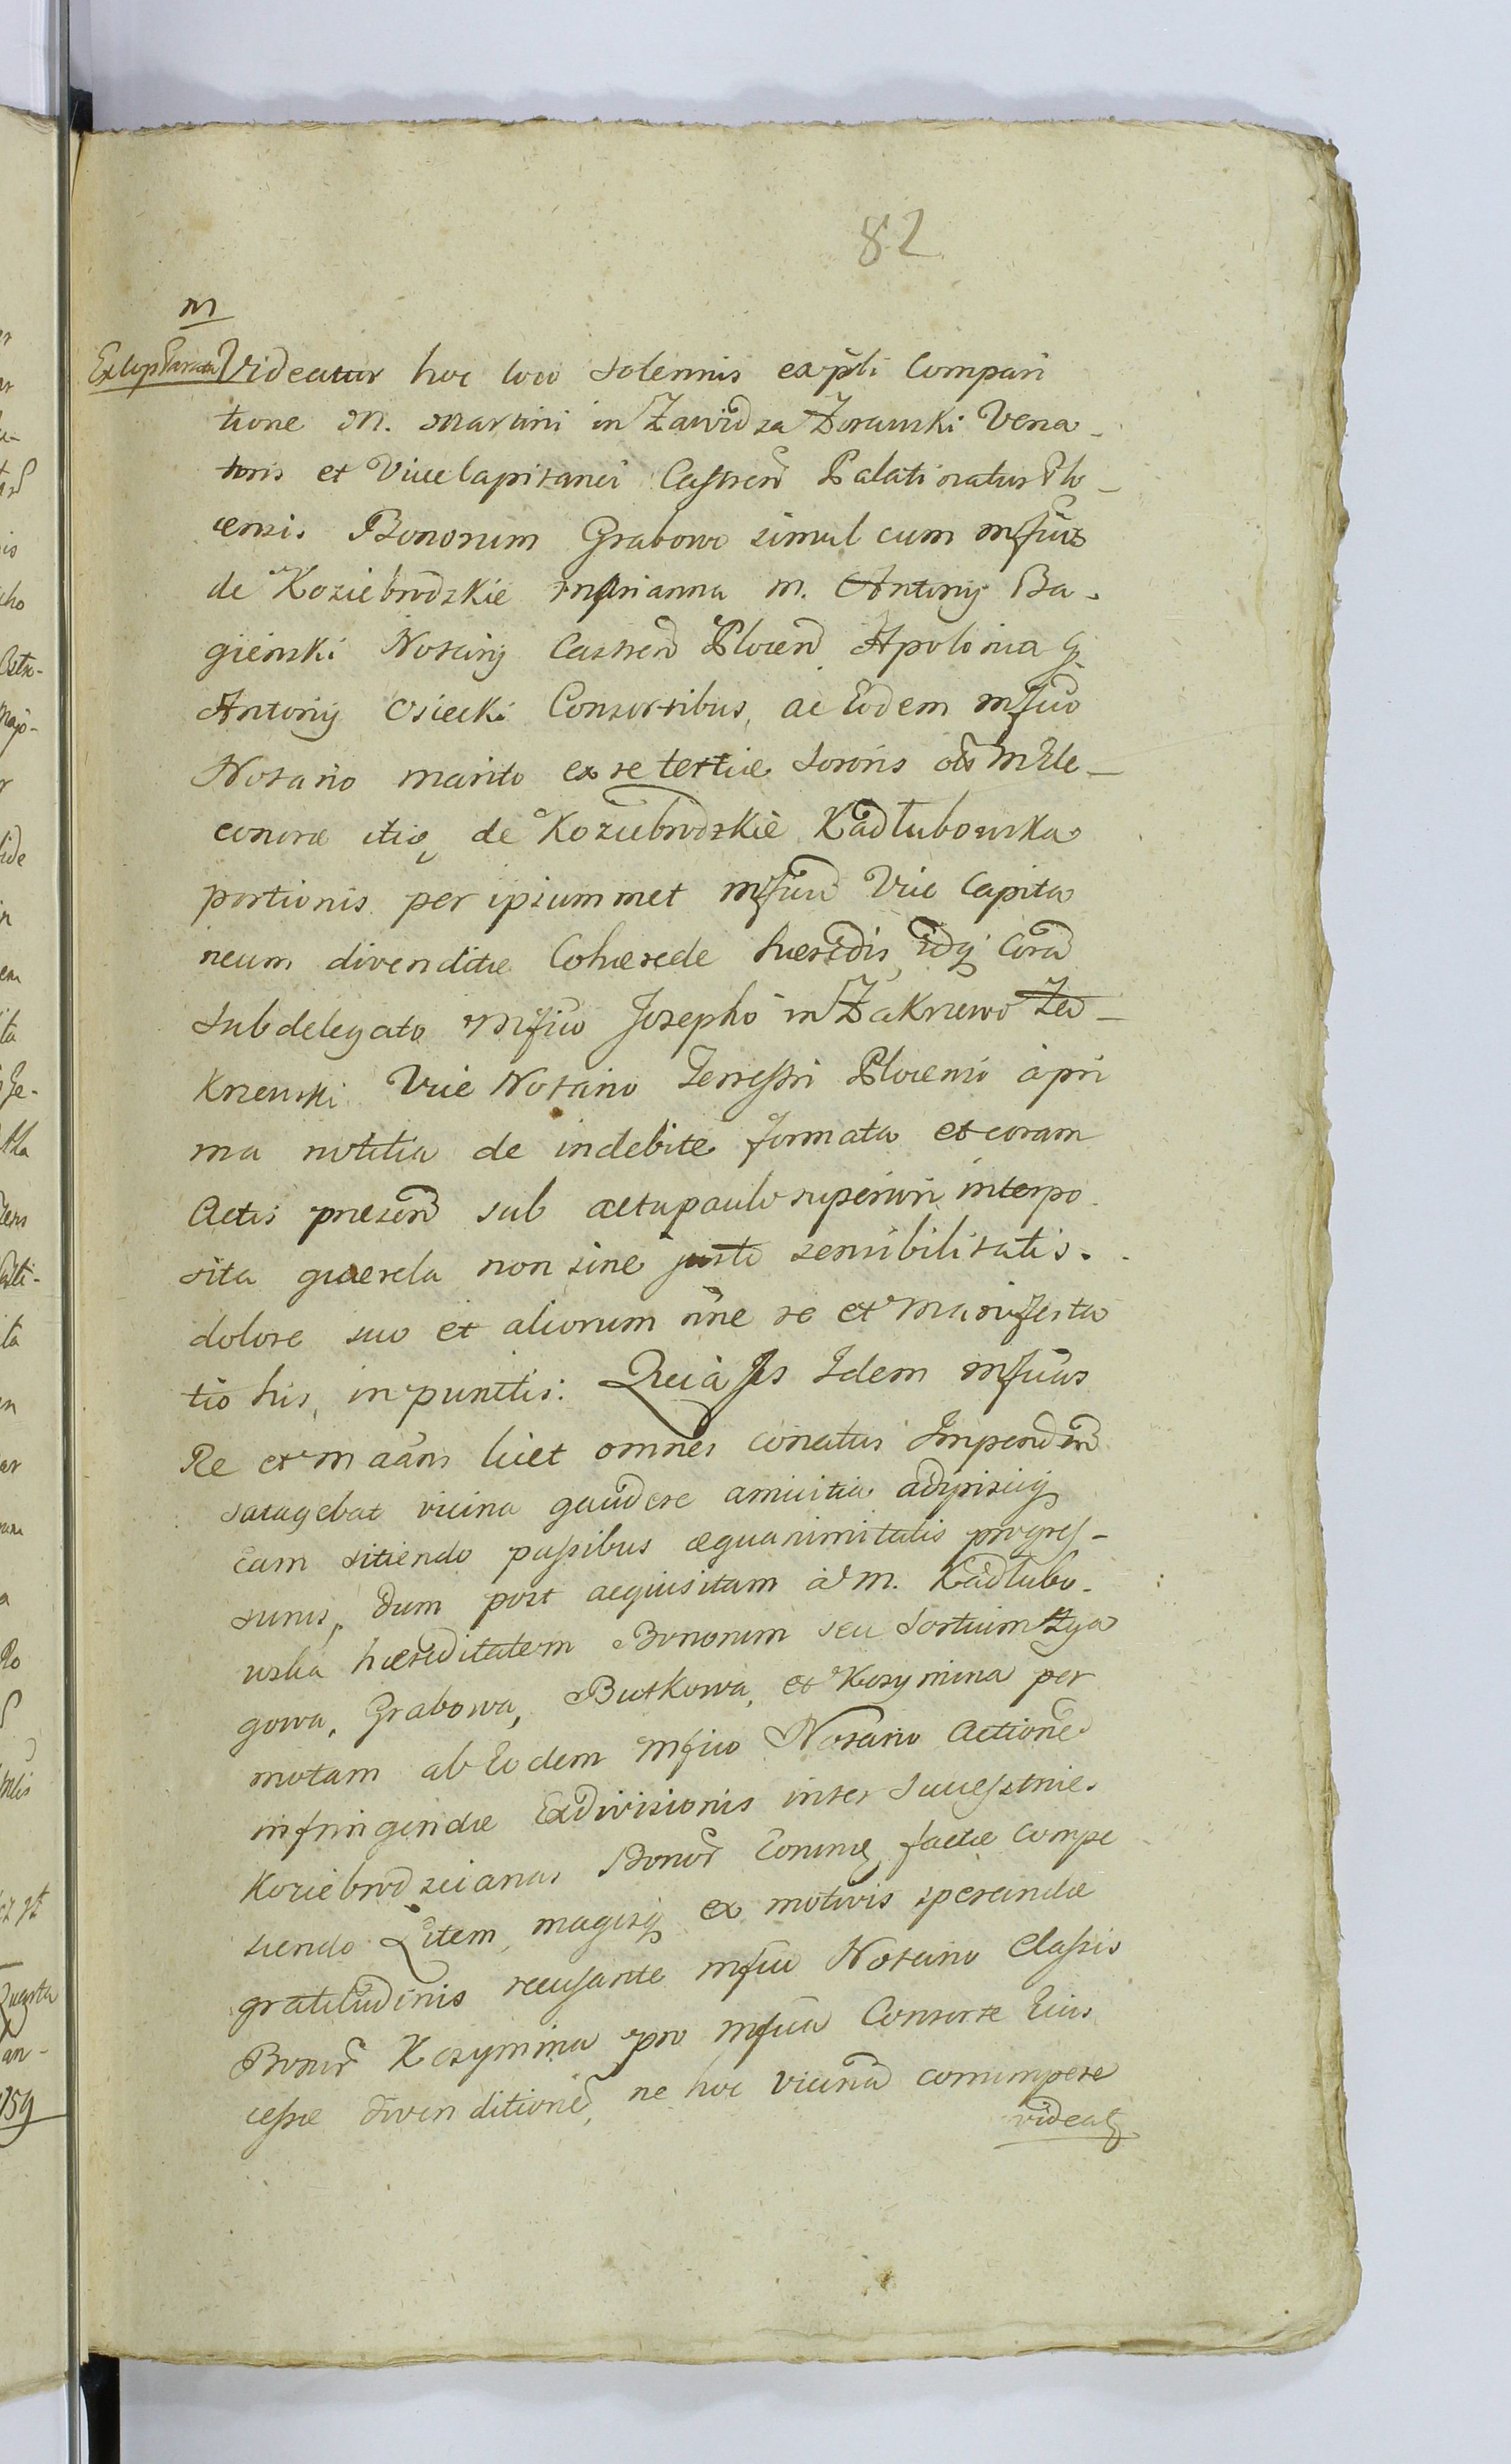 82
M
Videatur hoc loco solennis expti Compari
tione M. Martini in Zawidza Zorawski Vena-
toris et Vice Capitanei Castren Palatinatus Plo-
censis Bonorum Grabowo simul cum Mfcis
de Koziebrodzkie Marianna M. Antonij Ba-
gienski Notarij Castren Plocen Apolonia G.
Antonij Osiecki Consortibus, ac Eodem Mfco
Notario marito ex re tertiæ sororis olim M Ele-
conoræ itiq de Koziebrodzkie Kadłubowska
portionis per ipsummet Mfcum Vice Capita
neum divenditæ Cohærede hæredis, idq Cora
Subdelegato Mfico Josepho in Zakrzewo Za-
krzewski Vice Notario Terrestri Plocensi à pri
ma notitia de indebite formata et coram
Actis præsen sub actu paulo superiori interpo
sita querela non sine justo sensibilitatis
dolore suo et aliorum nne re et Manifesta
tio his, in punctis: Quia Is Idem Mficus
Re et Maans licet omnes conatus Impenden
satagebat vicina gaudere amicitia adipisciq
eam sitiendo passibus æquanimitatis progres-
surus, dum post acquisitam à M. Kadłubo-
wska hæreditatem Bonorum seu Sortium Zga
gowa, Grabowa, Butkowa, et Kozymina per
motam ab Eodem Mfico Notario Actione
infringendæ Exdivisionis inter Successtrices
Koziebrodscianas Bonor Eorumq factæ compe
scendo Litem, magisq ex motivis sperandæ
gratitudinis recusante Mfico Notario Classis
Bonor Kozymina pro Mfica Consorte Eius
cessæ divenditione, ne hoc vicina corrumpere
videatq